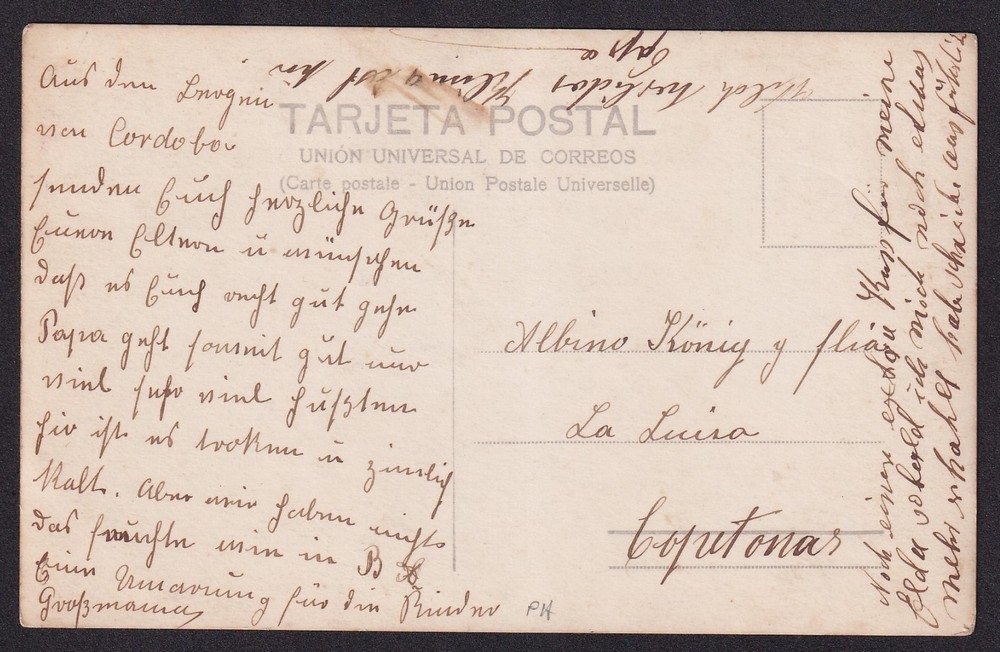 Aus den Bergen
von Cordoba
senden Euch herzliche Grüße
Euere Eltern u wünschen
daß es Euch recht gut gehe
Papa geht soweit gut nur
viel sehr viel hußten
hir ist es trocken u zimlich
kalt. Aber wir haben nicht
das feuchte wie in B
Eine Umarmung für die Kinder
Großmama
ist hir
TARJETA POSTAL
UNIÓN UNIVERSAL DE CORREOS
(Carte postale - Union Postale Universelle)
Albino König y flia
La Luisa
Copetonas
Noch einen extra Kuss für meine
ich mich noch etwas
mehr hab schreibe ausführlich
PH